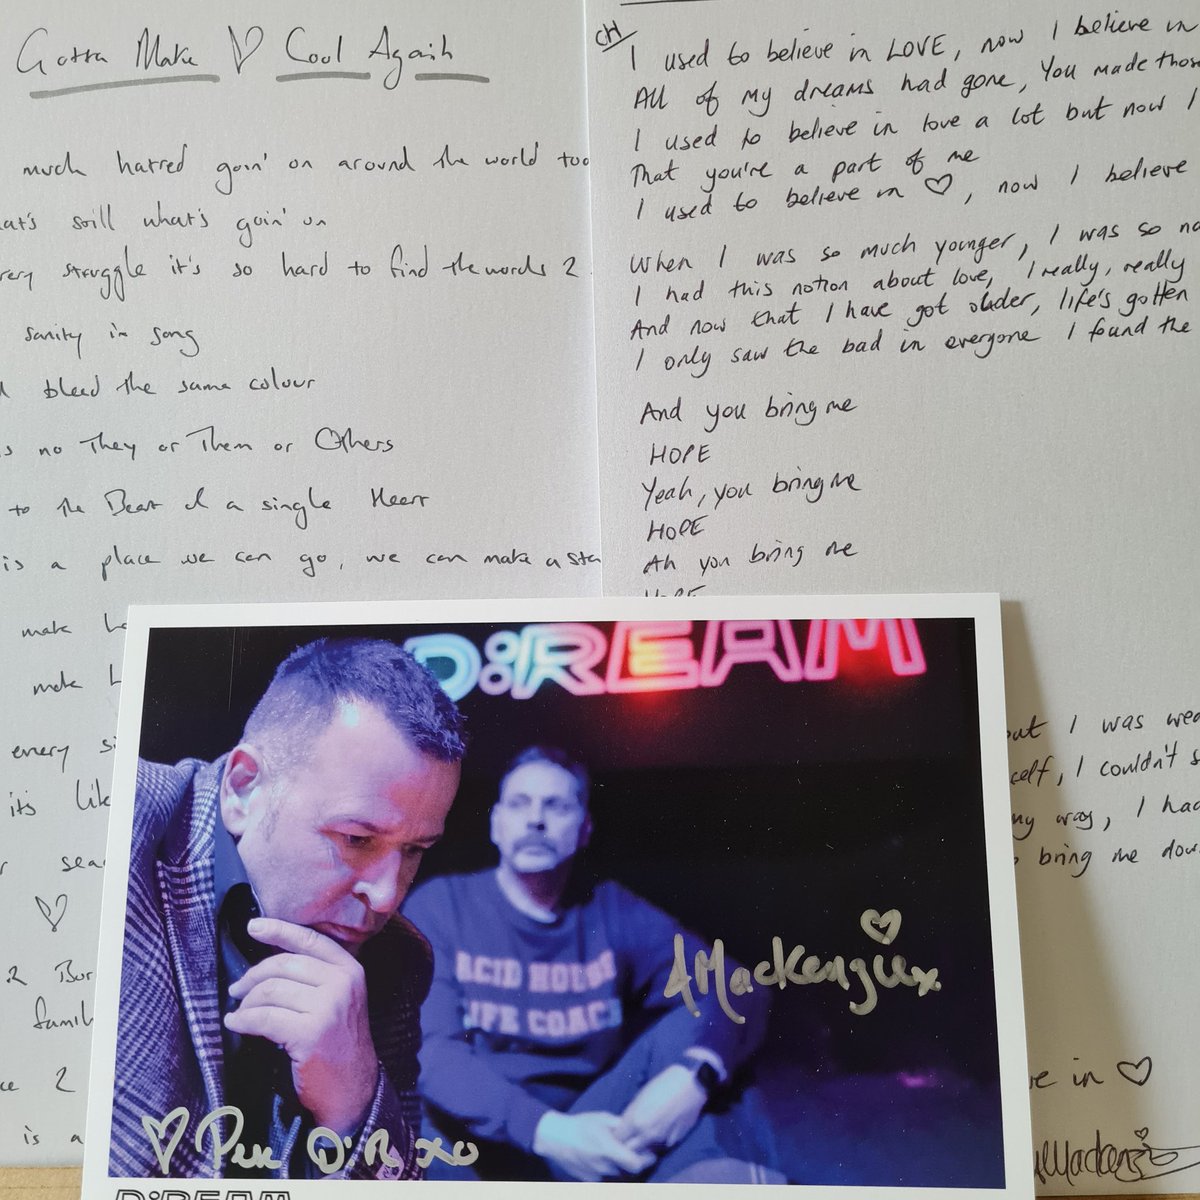 Gotta Make ♡ Cool Again
much hatred goin' on around the world too
what's still what's goin' on
struggle it's so hard to find the words 2
sanity in song
bleed the same colour
no They or Them or Others
to the Beat of a single Heart
is a place we can go, we can make a sta
make
make
every si
it's lik
sea
♡
2 Bur
famil
2
is a
CH
I used to believe in LOVE, now I believe in
All of my dreams had gone, You made those
I used to believe in love a lot but now I
That you're a part of me
I used to believe in ♡, now I believe
When I was so much younger, I was so na
I had this notion about love, I really, really
And now that I have got older, life's gotten
I only saw the bad in everyone I found the
And you bring me
HOPE
Yeah, you bring me
HOPE
Ah you bring me
HOPE
but I was wea
self, I couldn't s
my way, I had
bring me dow
ve in ♡
AMackenzie
D:REAM
ACID HOUSE
LIFE COACH
AMackenzie x
♡ Pete O'R xo
D:REAM